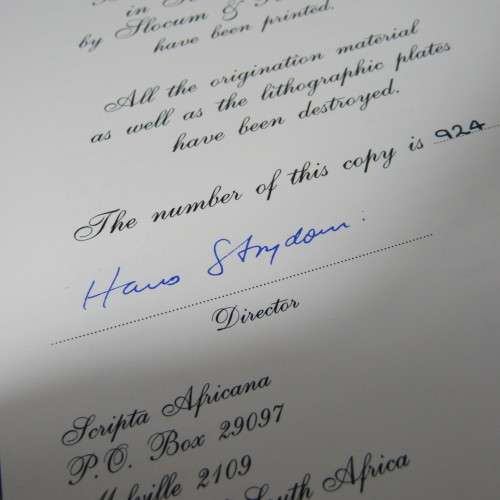 in
by Slocum &
have been printed.
All the origination material
as well as the lithographic plates
have been destroyed.
The number of this copy is 924
Hans Strydom.
Director
Scripta Africana
P.O. Box 29097
2109
South Africa